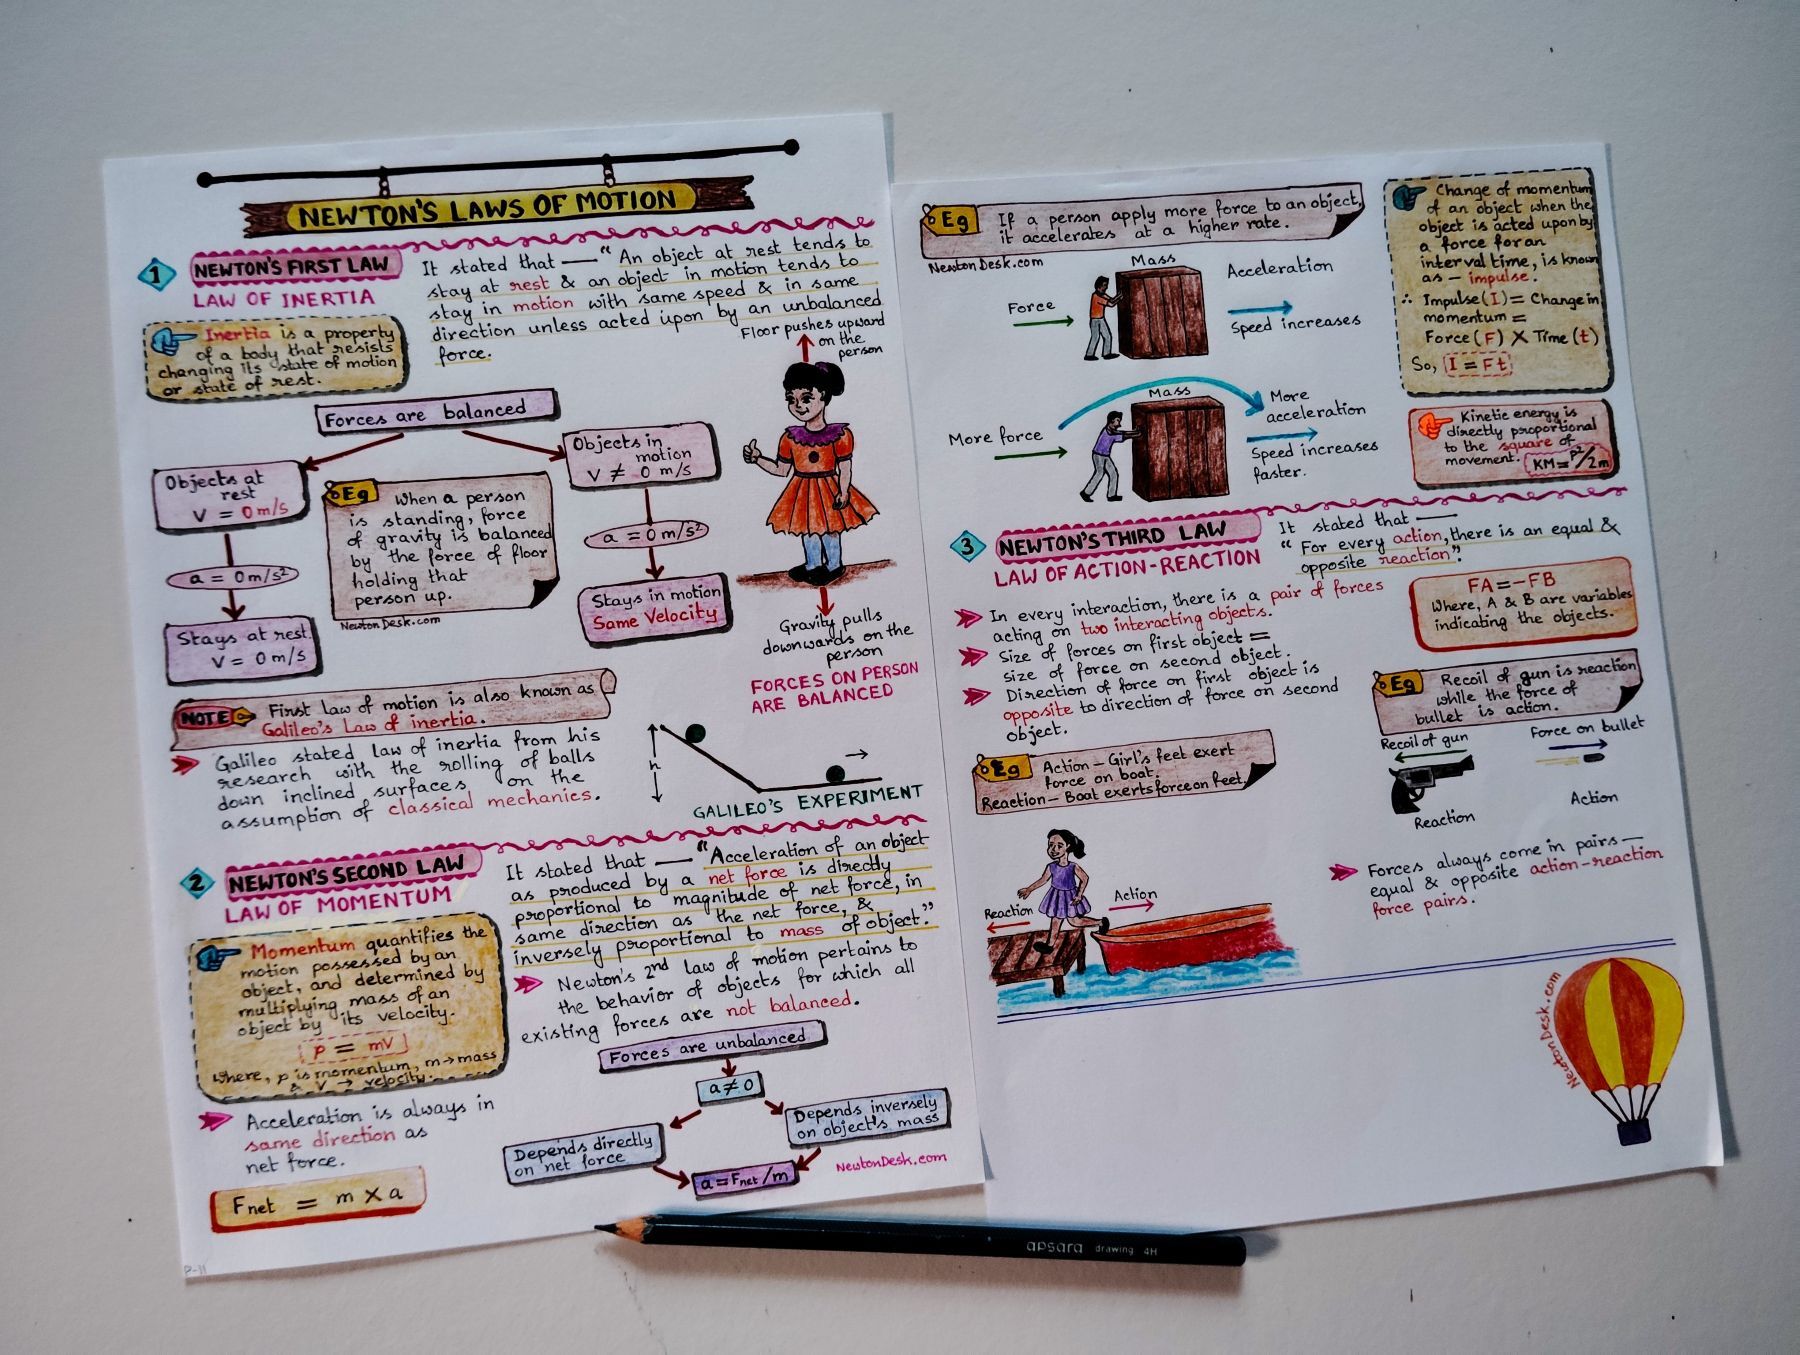 NEWTON'S LAWS OF MOTION
1
NEWTON'S FIRST LAW
LAW OF INERTIA
It stated that — "An object at rest tends to
stay at rest & an object in motion tends to
stay in motion with same speed & in same
direction unless acted upon by an unbalanced
force.
Inertia is a property
of a body that resists
changing its state of motion
or state of rest.
Floor pushes upward
on the
person
Forces are balanced
Objects at
rest
V = 0 m/s
a = 0 m/s²
Stays at rest
V = 0 m/s
Eg
When a person
is standing, force
of gravity is balanced
by the force of floor
holding that
person up.
NewtonDesk.com
Objects in
motion
V ≠ 0 m/s
a = 0 m/s²
Stays in motion
Same Velocity
Gravity pulls
downwards on the
person
FORCES ON PERSON
ARE BALANCED
NOTE
First law of motion is also known as
Galileo's Law of inertia.
Galileo stated law of inertia from his
research with the rolling of balls
down inclined surfaces on the
assumption of classical mechanics.
h
GALILEO'S EXPERIMENT
2
NEWTON'S SECOND LAW
LAW OF MOMENTUM
It stated that — "Acceleration of an object
as produced by a net force is directly
proportional to magnitude of net force, in
same direction as the net force, &
inversely proportional to mass of object."
Momentum quantifies the
motion possessed by an
object, and determined by
multiplying mass of an
object by its velocity.
p = mV
where, p is momentum, m → mass
& V → velocity.
Newton's 2nd law of motion pertains to
the behavior of objects for which all
existing forces are not balanced.
Acceleration is always in
same direction as
net force.
Fnet = m × a
Forces are unbalanced
a ≠ 0
Depends directly
on net force
Depends inversely
on object's mass
a = Fnet/m
NewtonDesk.com
P-11
Eg
If a person apply more force to an object,
it accelerates at a higher rate.
NewtonDesk.com
Mass
Force
Acceleration
Speed increases
Mass
More force
More
acceleration
Speed increases
faster.
Change of momentum
of an object when the
object is acted upon by
a force for an
interval time, is known
as - impulse.
∴ Impulse (I) = Change in
momentum =
Force (F) × Time (t)
So, I = Ft
Kinetic energy is
directly proportional
to the square of
movement. KM = P²/2m
3
NEWTON'S THIRD LAW
LAW OF ACTION-REACTION
It stated that —
"For every action, there is an equal &
opposite reaction".
In every interaction, there is a pair of forces
acting on two interacting objects.
Size of forces on first object =
size of force on second object.
Direction of force on first object is
opposite to direction of force on second
object.
FA = -FB
Where, A & B are variables
indicating the objects.
Eg
Recoil of gun is reaction
while the force of
bullet is action.
Recoil of gun
Force on bullet
Reaction
Action
Eg
Action - Girl's feet exert
force on boat.
Reaction - Boat exerts force on feet.
Reaction
Action
Forces always come in pairs —
equal & opposite action-reaction
force pairs.
NewtonDesk.com
apsara drawing 4H